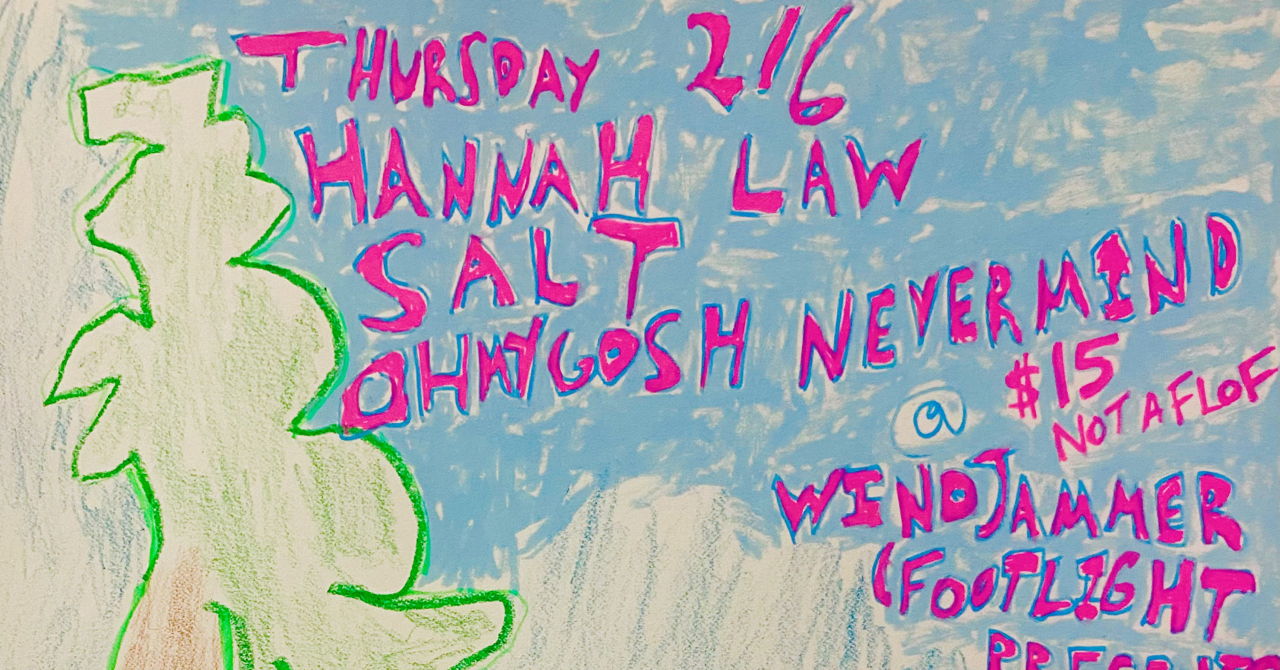 THURSDAY 2/6
HANNAH LAW
SALT
OHMYGOSH NEVERMIND
$15
NOTAFLOF
@
WINDJAMMER
(FOOTLIGHT
PRESENTS